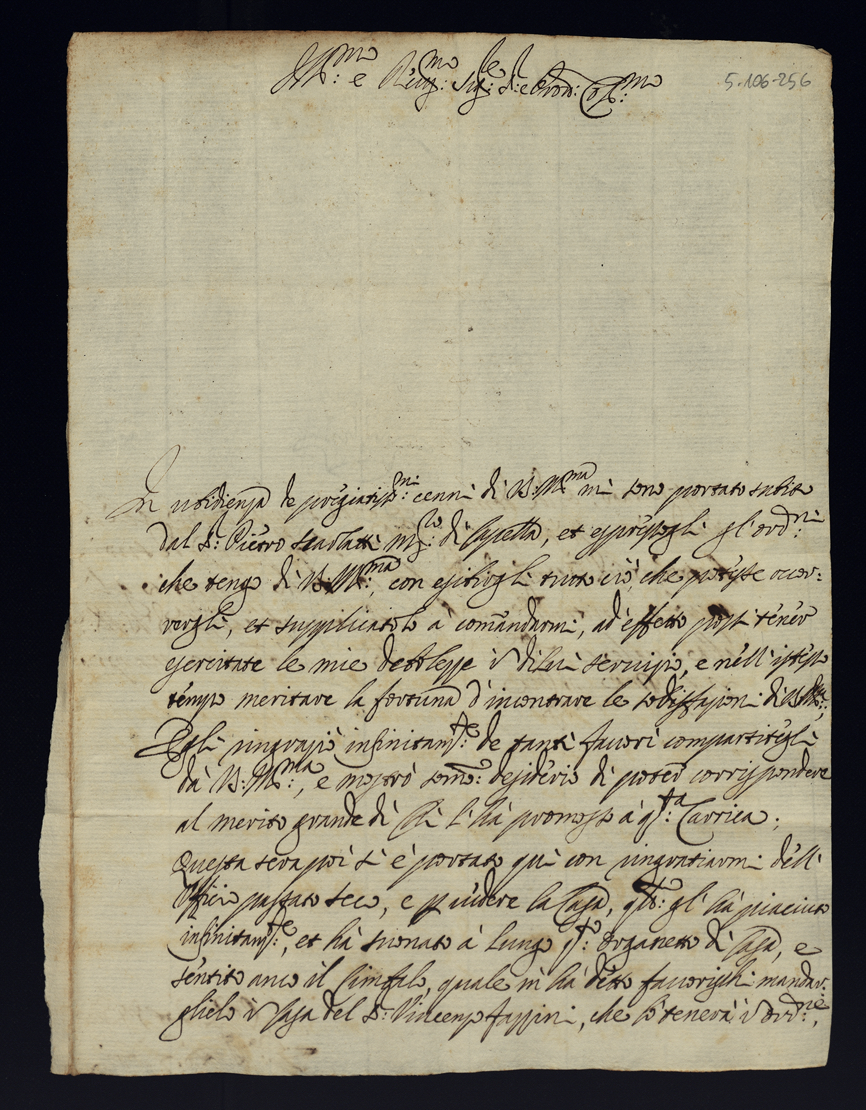 Ill:mo e Rev:mo Sig:re S:r e Pron: Col:mo
5-106-256
In ubidienza de pregiatiss:mi cenni di V.S. Ill:ma mi sono portato subito
dal S:r Pietro Scarlatti M:ro di Capella, et espressogli gl'ord:ni
che tengo di V.S. Ill:ma, con esibirgli tutto ciò, che potesse occor:
rergli, et supplicatolo à comãndarmi, ad effetto possi tener
esercitate le mie debolezze i di lui servizio, e nell'istesso
tempo meritare la fortuna d'incontrare le sodisfazioni di V.S. Ill:ma;
Egli ringraziò infinitam:te de tanti favori compartitigli
da V.S. Ill:ma, e mostrò som:o desiderio di poter corrispondere
al merito grande di chi l'hà promosso à q:ta Carrica;
Questa sera poi si è portato qui con ringratiarmi dell'
Officio passato seco, e p vedere la Casa, q:le gl'hà piaciuto
infinitam:te, et hà suonato à lungo q:to organetto di Casa, e
sentito anco il Cimbalo, quale m'hà detto favorischi mandar:
glielo i Casa del S:r Vincenzo Fazzini, che lo tenerà i ord:ne,